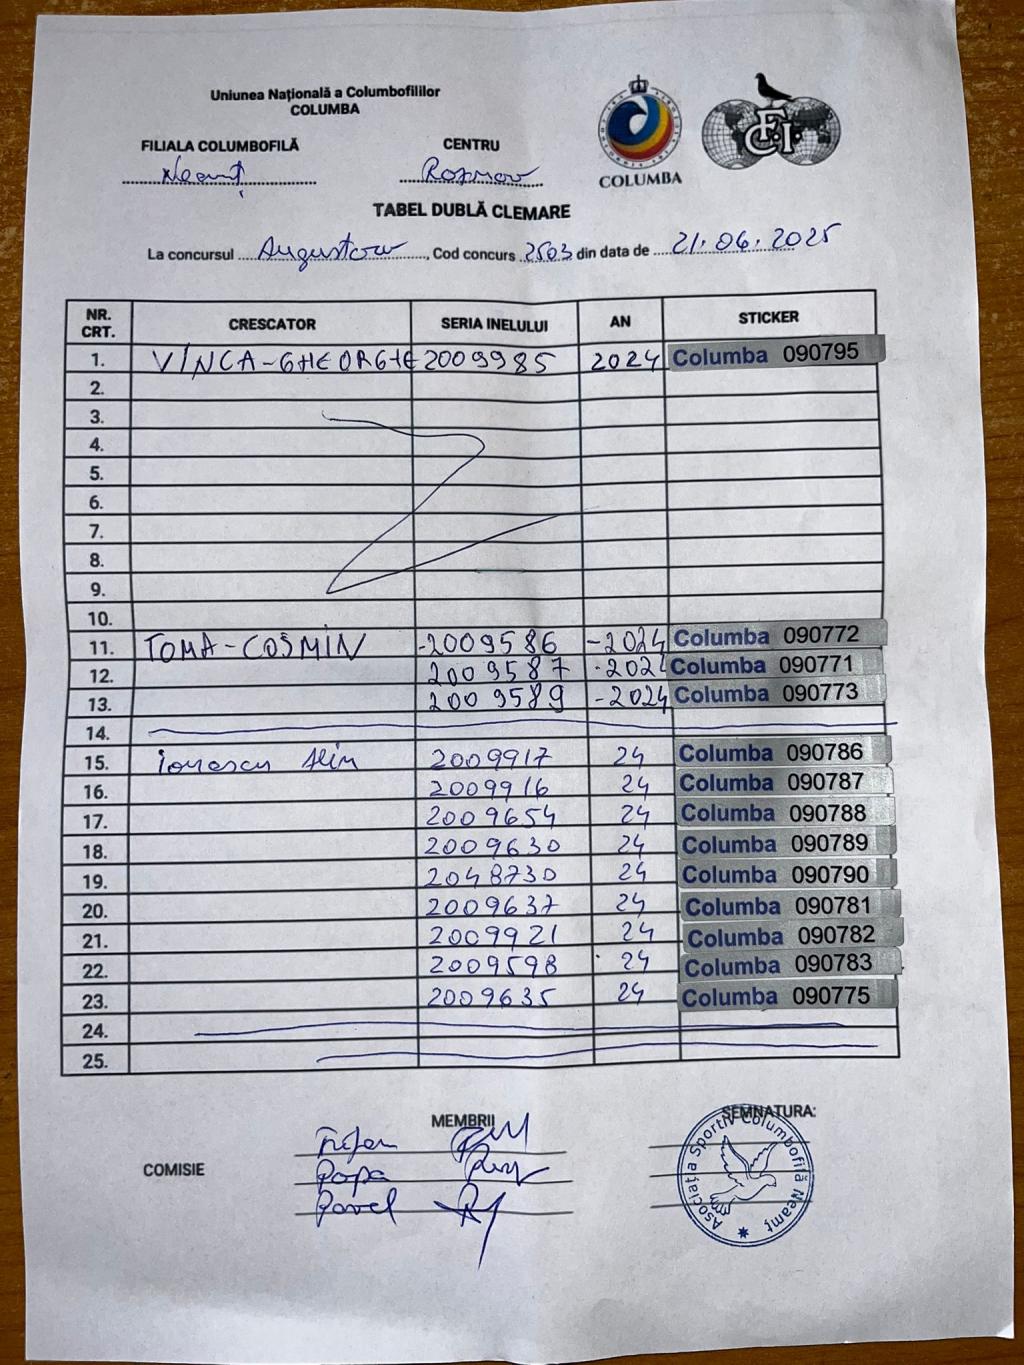 Uniunea Națională a Columbofililor
COLUMBA
FILIALA COLUMBOFILĂ
Neamț
CENTRU
Roznov
COLUMBA
FCI
TABEL DUBLĂ CLEMARE
La concursul Augustow, Cod concurs 2503 din data de 21.06.2025
NR. CRT. CRESCATOR SERIA INELULUI AN STICKER
1. VINCA-GHEORGHE 2009985 2024 Columba 090795
2.
3.
4.
5.
6.
7.
8.
9.
10.
11. TOMA-COSMIN -2009586 -2024 Columba 090772
12. 2009587 -2024 Columba 090771
13. 2009589 -2024 Columba 090773
14.
15. Ionascu Alin 2009917 24 Columba 090786
16. 2009916 24 Columba 090787
17. 2009654 24 Columba 090788
18. 2009630 24 Columba 090789
19. 2048730 24 Columba 090790
20. 2009637 24 Columba 090781
21. 2009921 24 Columba 090782
22. 2009598 24 Columba 090783
23. 2009635 24 Columba 090775
24.
25.
MEMBRII
SEMNATURA:
COMISIE
Popa
Pavel
Asociația Sportiv Columbofilă Neamț